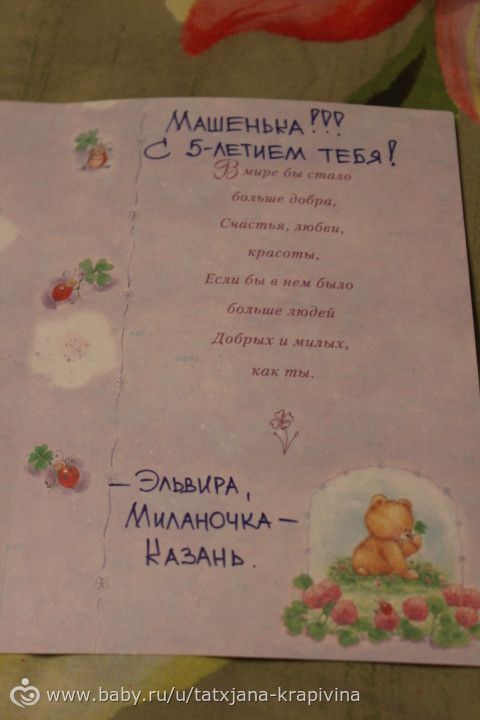 Машенька!!!
С 5-летием тебя!
В мире бы стало
больше добра,
Счастья, любви,
красоты,
Если бы в нем было
больше людей
Добрых и милых,
как ты.
– Эльвира,
Миланочка –
Казань.
www.baby.ru/u/tatxjana-krapivina